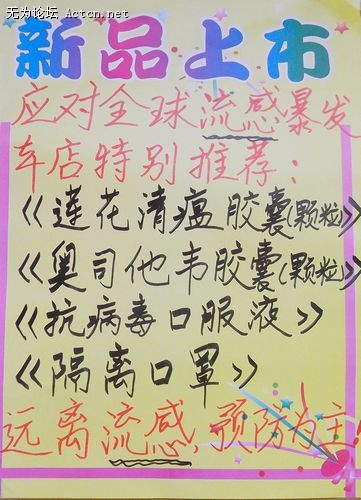 无为论坛 Actcn.net
新品上市
应对全球流感暴发
车店特别推荐：
《莲花清瘟胶囊(颗粒)》
《奥司他韦胶囊(颗粒)》
《抗病毒口服液》
《隔离口罩》
远离流感、预防为主